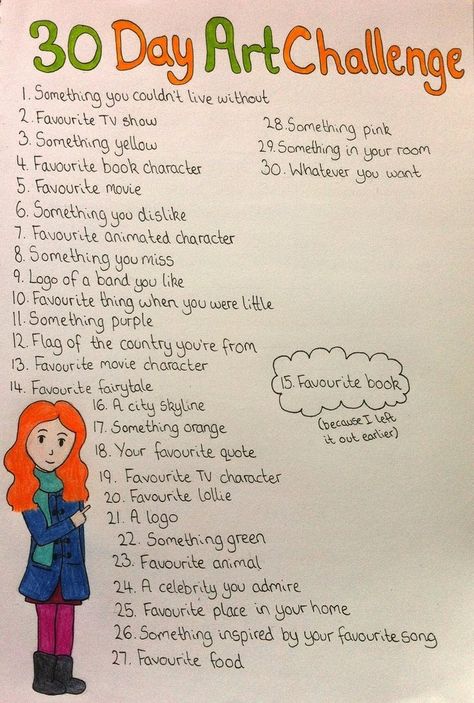 30 Day Art Challenge
1. Something you couldn't live without
2. Favourite TV show
3. Something yellow
4. Favourite book character
5. Favourite movie
6. Something you dislike
7. Favourite animated character
8. Something you miss
9. Logo of a band you like
10. Favourite thing when you were little
11. Something purple
12. Flag of the country you're from
13. Favourite movie character
14. Favourite fairytale
15. Favourite book
(because I left
it out earlier)
16. A city skyline
17. Something orange
18. Your favourite quote
19. Favourite TV character
20. Favourite lollie
21. A logo
22. Something green
23. Favourite animal
24. A celebrity you admire
25. Favourite place in your home
26. Something inspired by your favourite song
27. Favourite food
28. Something pink
29. Something in your room
30. Whatever you want